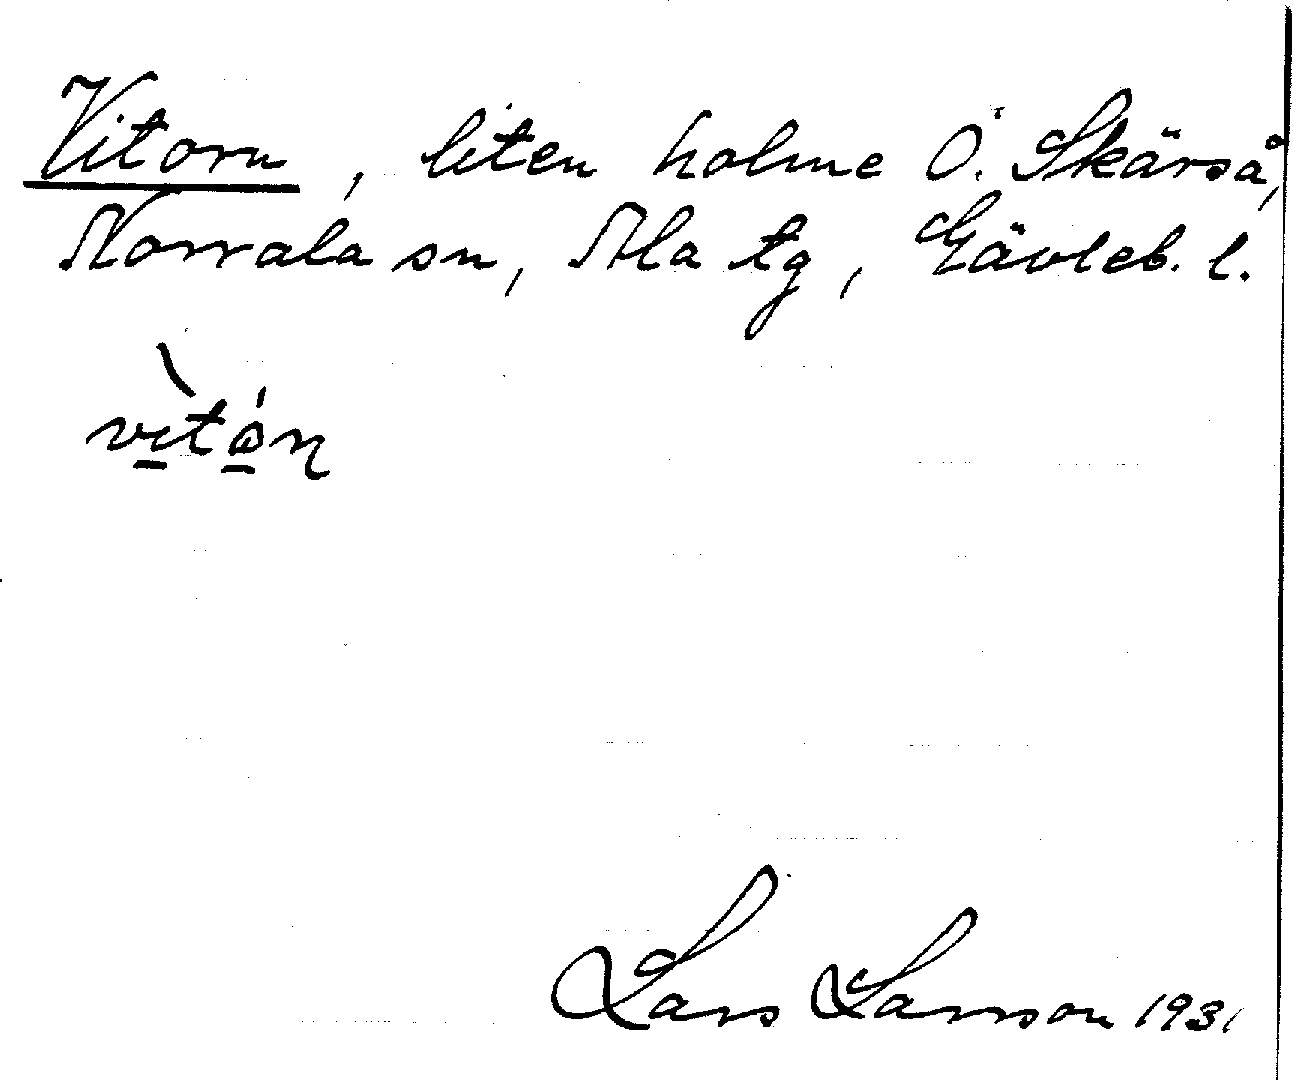 Vitorn, liten holme Ö. Skärså,
Norrala sn, Ala tg, Gävleb. l.
Lars Larsson 1931